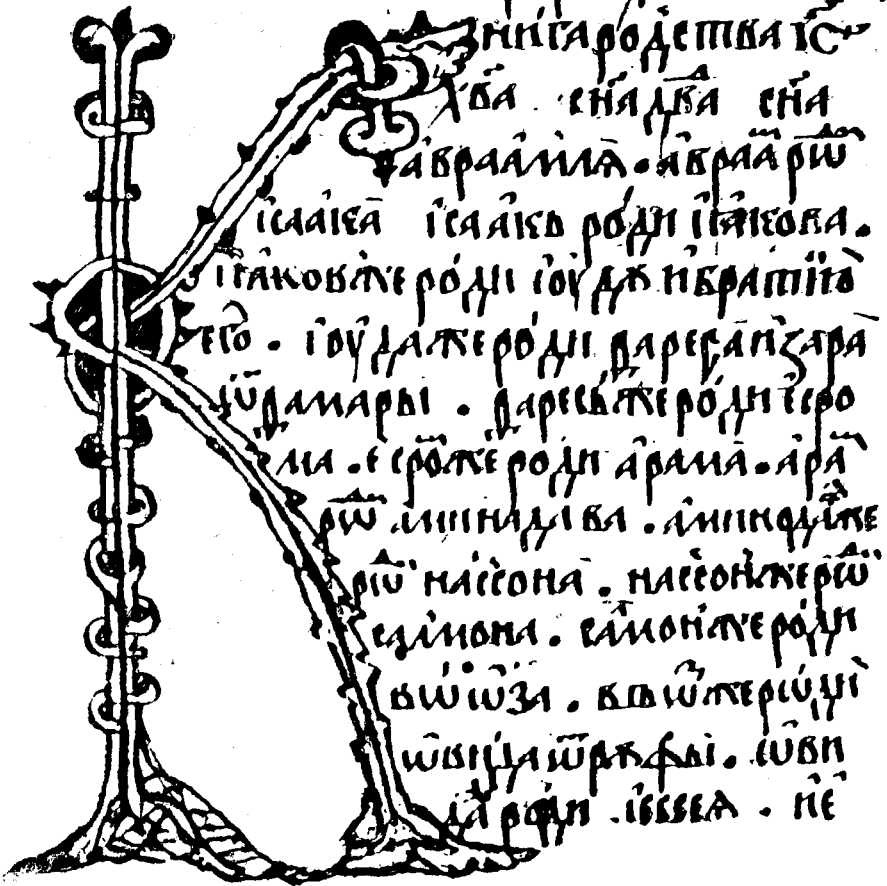 Книга родства їс
хв҃а сн҃а дв҃да сн҃а
авраамлѧ . авраа рѡ
ісаака ісаакъ роди іꙗкова .
іꙗковъ же роди іоудꙋ и братию
его . іоуда же роди фареса и зара
ѿ фамары . фаресъ же роди есро
ма . есро же роди арама . ара
рѡ аминадава . аминода же
рѡ нассона . нассон же рѡ
салмона . салмон же роди
вѡѡза . вѡѡ же рѡди
ѡвида ѿ рꙋфы . ѡви
да роди . іессеѧ . ие